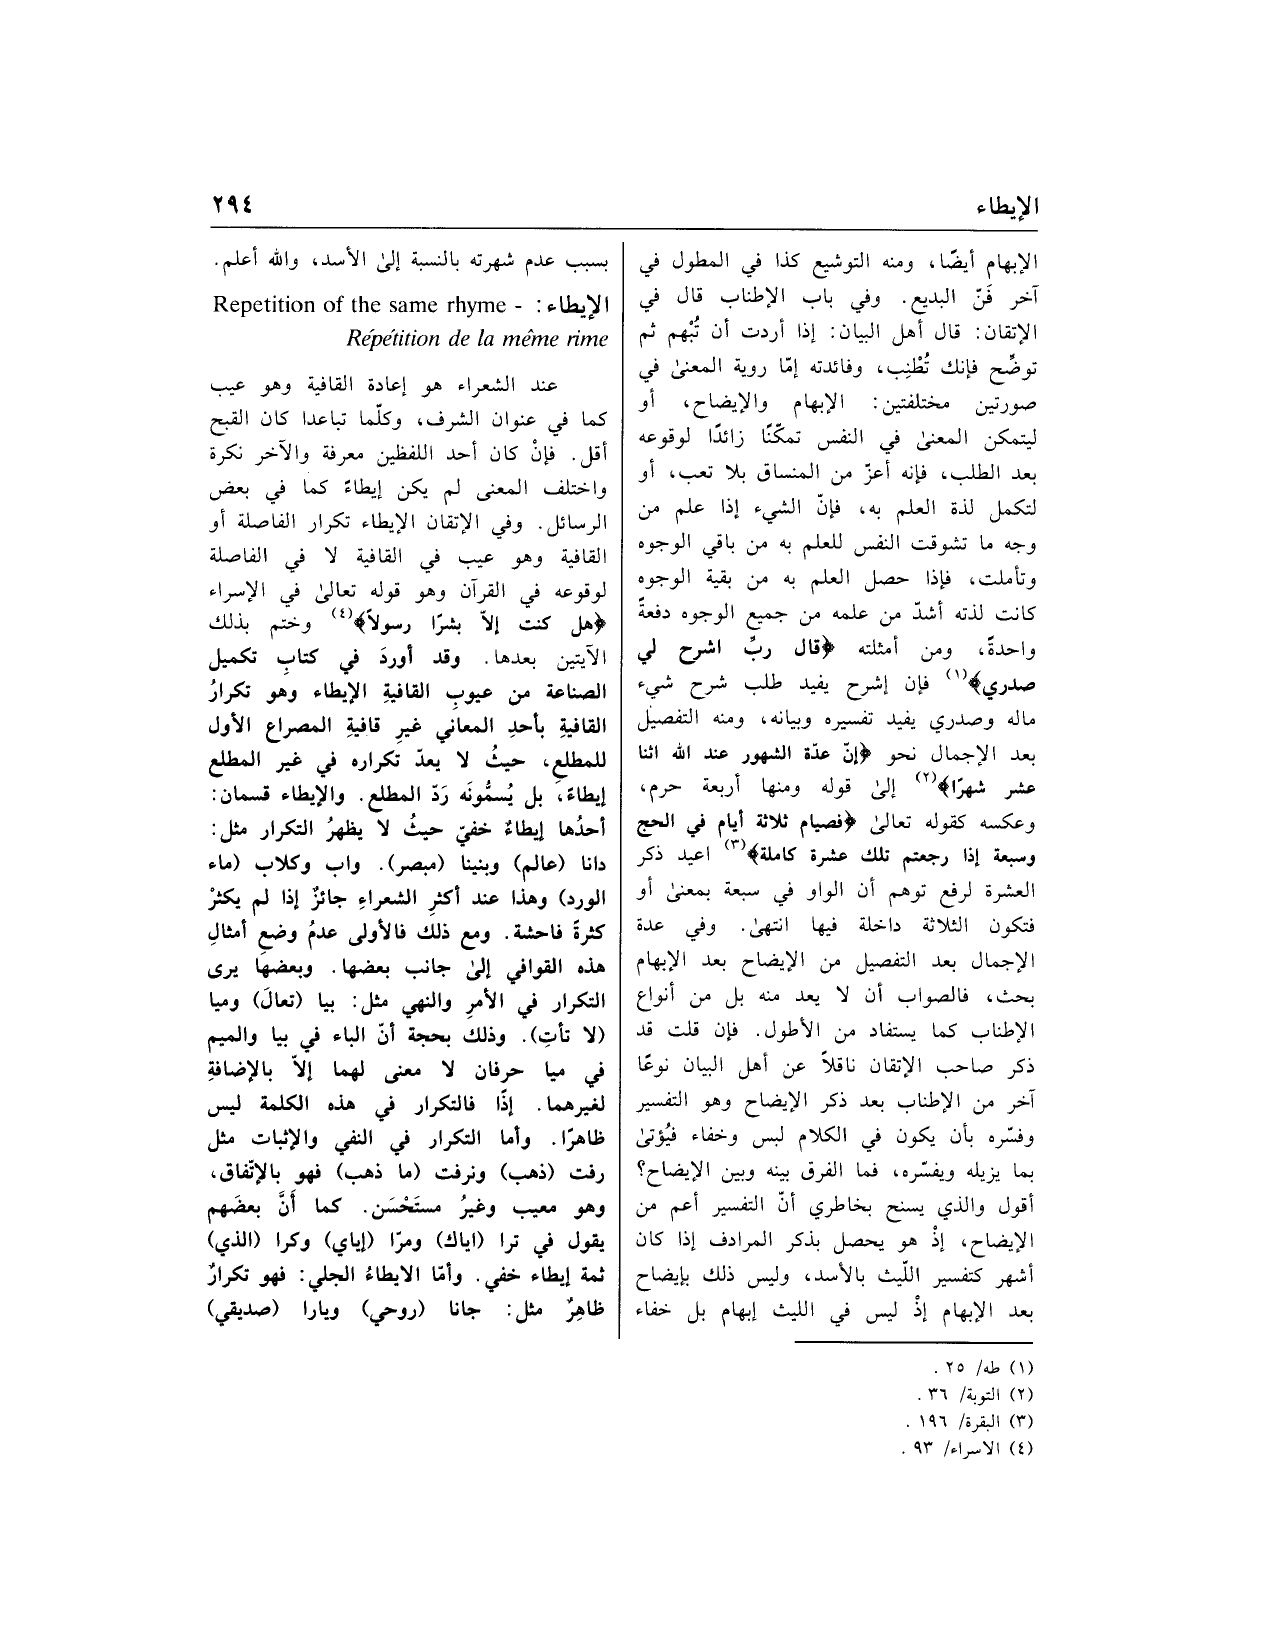 الإيطاء
٢٩٤
الإبهام أيضًا، ومنه التوشيع كذا في المطول في
آخر فَنّ البديع. وفي باب الإطناب قال في
الإتقان: قال أهل البيان: إذا أردت أن تُبْهم ثم
توضِّح فإنك تُطْنِب، وفائدته إمّا روية المعنىٰ في
صورتين مختلفتين: الإبهام والإيضاح، أو
ليتمكن المعنىٰ في النفس تمكّنًا زائدًا لوقوعه
بعد الطلب، فإنه أعزّ من المنساق بلا تعب، أو
لتكمل لذة العلم به، فإنّ الشيء إذا علم من
وجه ما تشوقت النفس للعلم به من باقي الوجوه
وتأملت، فإذا حصل العلم به من بقية الوجوه
كانت لذته أشدّ من علمه من جميع الوجوه دفعةً
واحدةً، ومن أمثلته ﴿قال ربِّ اشرح لي
صدري﴾(١) فإن إشرح يفيد طلب شرح شيء
ماله وصدري يفيد تفسيره وبيانه، ومنه التفصيل
بعد الإجمال نحو ﴿إنّ عدّة الشهور عند الله اثنا
عشر شهرًا﴾(٢) إلىٰ قوله ومنها أربعة حرم،
وعكسه كقوله تعالىٰ ﴿فصيام ثلاثة أيام في الحج
وسبعة إذا رجعتم تلك عشرة كاملة﴾(٣) اعيد ذكر
العشرة لرفع توهم أن الواو في سبعة بمعنىٰ أو
فتكون الثلاثة داخلة فيها انتهىٰ. وفي عدة
الإجمال بعد التفصيل من الإيضاح بعد الإبهام
بحث، فالصواب أن لا يعد منه بل من أنواع
الإطناب كما يستفاد من الأطول. فإن قلت قد
ذكر صاحب الإتقان ناقلاً عن أهل البيان نوعًا
آخر من الإطناب بعد ذكر الإيضاح وهو التفسير
وفسّره بأن يكون في الكلام لبس وخفاء فيُؤتىٰ
بما يزيله ويفسّره، فما الفرق بينه وبين الإيضاح؟
أقول والذي يسنح بخاطري أنّ التفسير أعم من
الإيضاح، إذْ هو يحصل بذكر المرادف إذا كان
أشهر كتفسير اللّيث بالأسد، وليس ذلك بإيضاح
بعد الإبهام إذْ ليس في الليث إبهام بل خفاء
بسبب عدم شهرته بالنسبة إلىٰ الأسد، والله أعلم.
الإيطاء: - Repetition of the same rhyme
Répétition de la même rime
عند الشعراء هو إعادة القافية وهو عيب
كما في عنوان الشرف، وكلّما تباعدا كان القبح
أقل. فإنْ كان أحد اللفظين معرفة والآخر نكرة
واختلف المعنى لم يكن إيطاءً كما في بعض
الرسائل. وفي الإتقان الإيطاء تكرار الفاصلة أو
القافية وهو عيب في القافية لا في الفاصلة
لوقوعه في القرآن وهو قوله تعالىٰ في الإسراء
﴿هل كنت إلاّ بشرًا رسولاً﴾(٤) وختم بذلك
الآيتين بعدها. وقد أوردَ في كتابِ تكميل
الصناعة من عيوبِ القافيةِ الإيطاء وهو تكرارُ
القافيةِ بأحدِ المعاني غيرِ قافيةِ المصراع الأول
للمطلعِ، حيثُ لا يعدّ تكراره في غير المطلع
إيطاءً، بل يُسمُّونَه رَدّ المطلع. والإيطاء قسمان:
أحدُها إيطاءٌ خفيّ حيثُ لا يظهرُ التكرار مثل:
دانا (عالم) وبنينا (مبصر). واب وكلاب (ماء
الورد) وهذا عند أكثرِ الشعراءِ جائزٌ إذا لم يكثرْ
كثرةً فاحشة. ومع ذلك فالأولى عدمُ وضعِ أمثالِ
هذه القوافي إلىٰ جانب بعضها. وبعضهَا يرى
التكرار في الأمرِ والنهي مثل: بيا (تعالَ) وميا
(لا تأتِ). وذلك بحجة أنّ الباء في بيا والميم
في ميا حرفان لا معنى لهما إلاّ بالإضافةِ
لغيرهما. إذًا فالتكرار في هذه الكلمة ليس
ظاهرًا. وأما التكرار في النفي والإثبات مثل
رفت (ذهب) ونرفت (ما ذهب) فهو بالإتّفاق،
وهو معيب وغيرُ مستَحْسَن. كما أنَّ بعضَهم
يقول في ترا (اياك) ومرّا (إياي) وكرا (الذي)
ثمة إيطاء خفي. وأمّا الايطاءُ الجلي: فهو تكرارٌ
ظاهِرٌ مثل: جانا (روحي) ويارا (صديقي)
(١) طه/ ٢٥ .
(٢) التوبة/ ٣٦ .
(٣) البقرة/ ١٩٦ .
(٤) الاسراء/ ٩٣ .